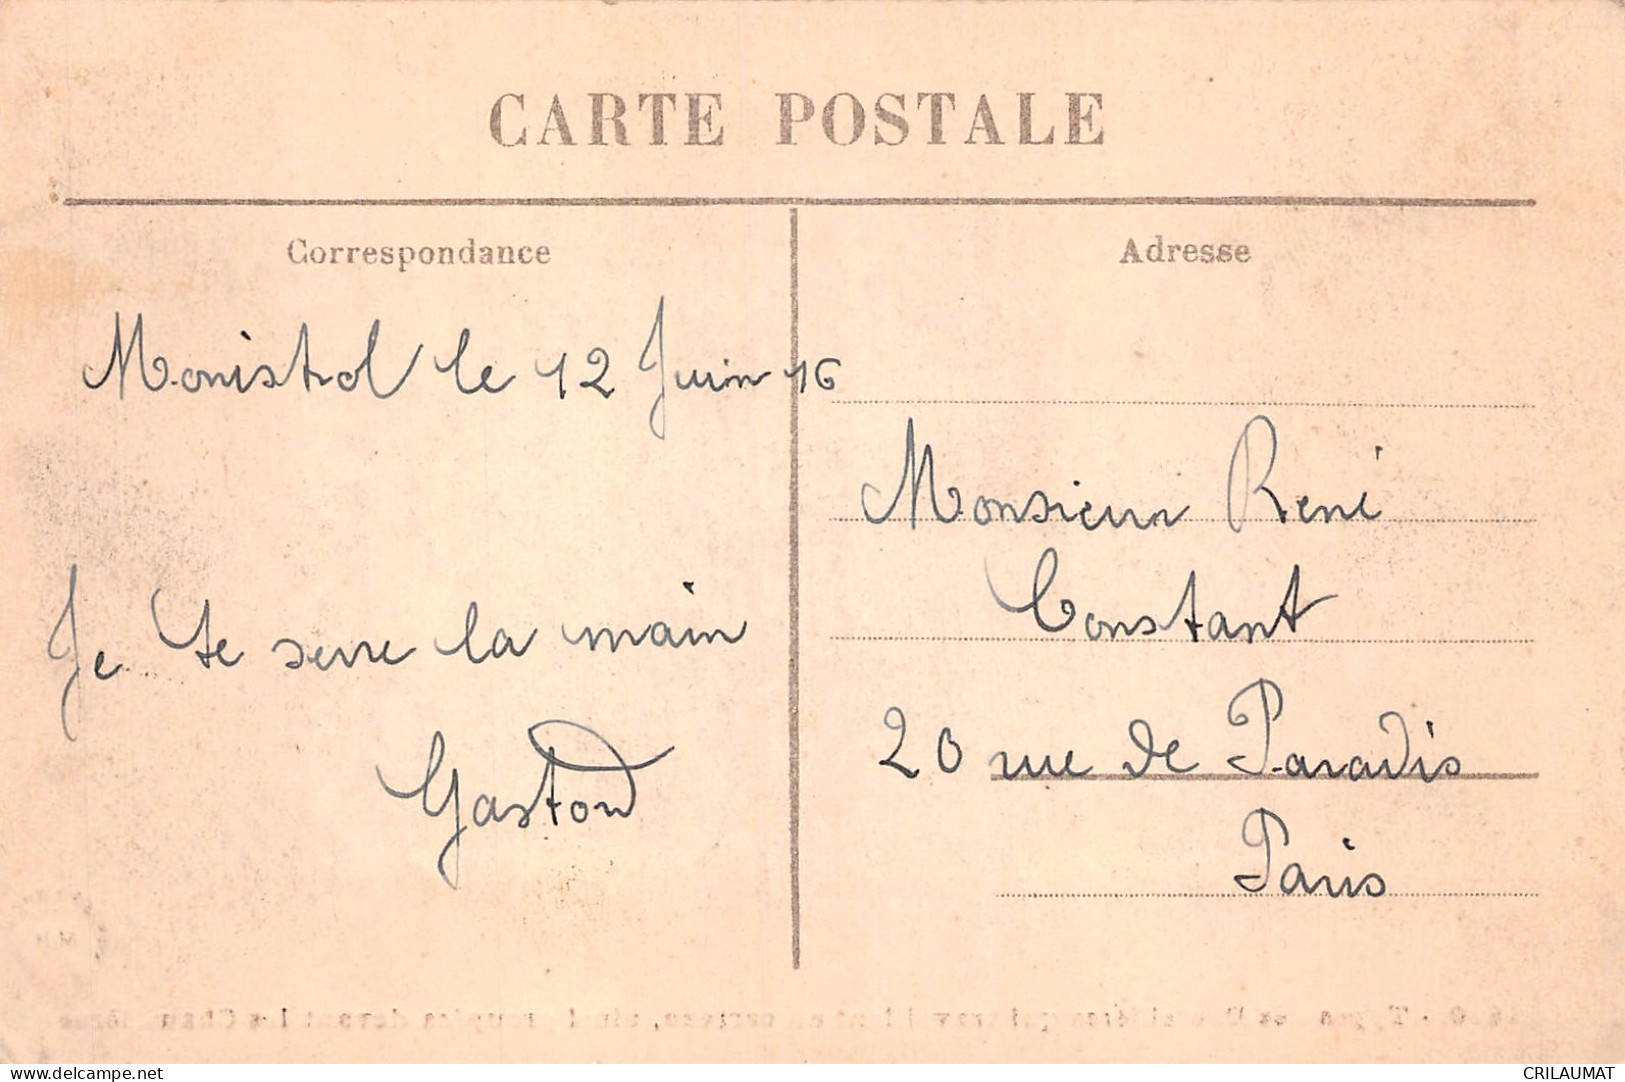 CARTE POSTALE
Correspondance
Monistrol le 12 Juin 16
Je te serre la main
Gaston
Adresse
Monsieur René
Constant
20 rue de Paradis
Paris
delcampe.net
CRILAUMAT